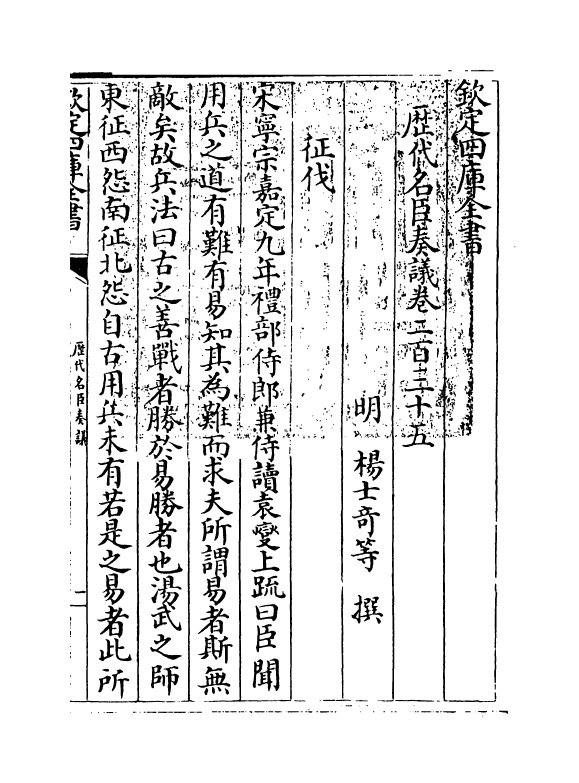 欽定四庫全書
歴代名臣奏議卷二百三十五
明 楊士竒等 撰
征伐
宋寧宗嘉定九年禮部侍郎兼侍讀袁燮上䟽曰臣聞
用兵之道有難有易知其為難而求夫所謂易者斯無
敵矣故兵法曰古之善戰者勝於易勝者也湯武之師
東征西怨南征北怨自古用兵未有若是之易者此所
欽定四庫全書
歴代名臣奏議
一